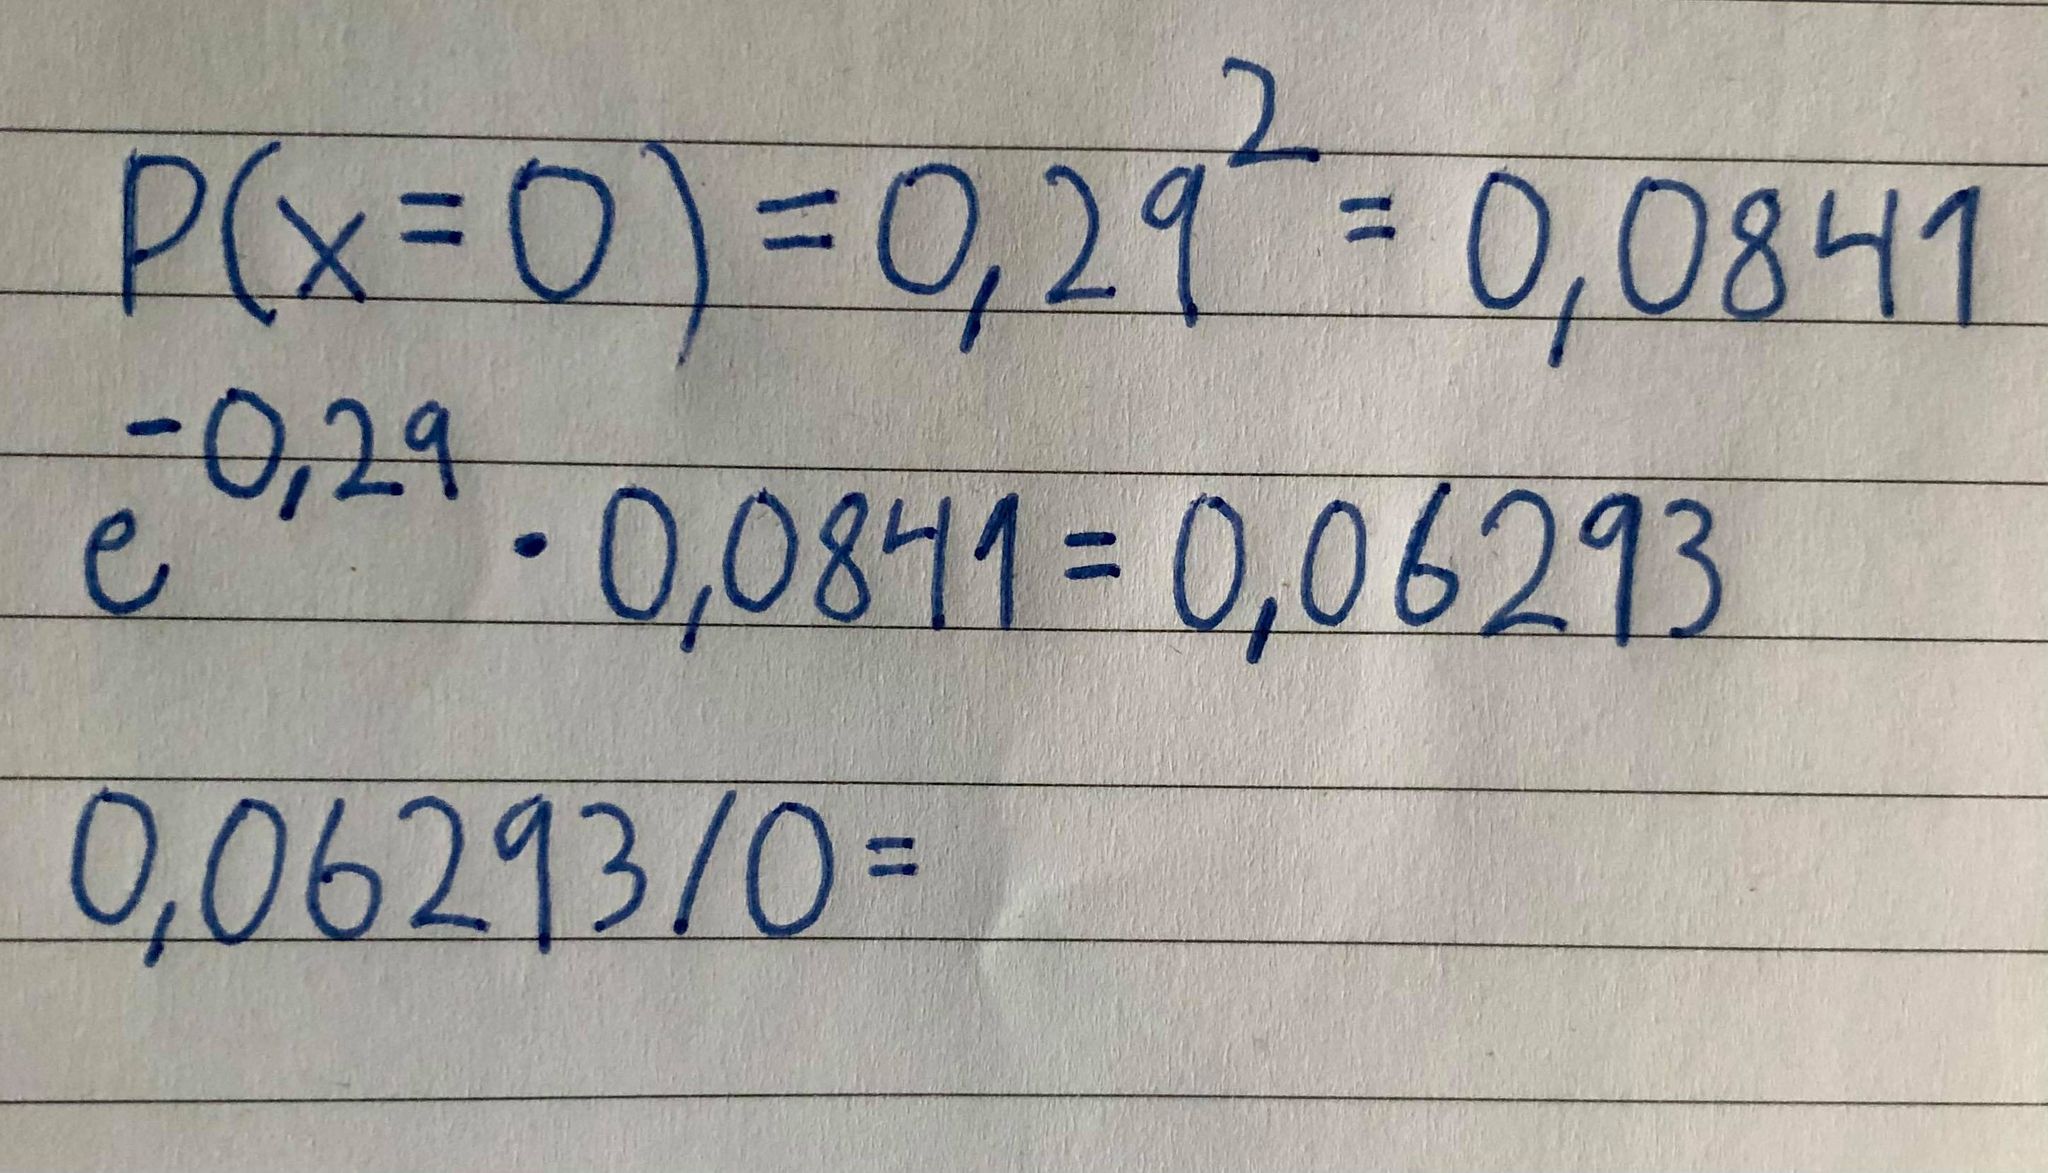 P(x=0)=0,29² = 0,0841
e^-0,29 · 0,0841 = 0,06293
0,06293/0=